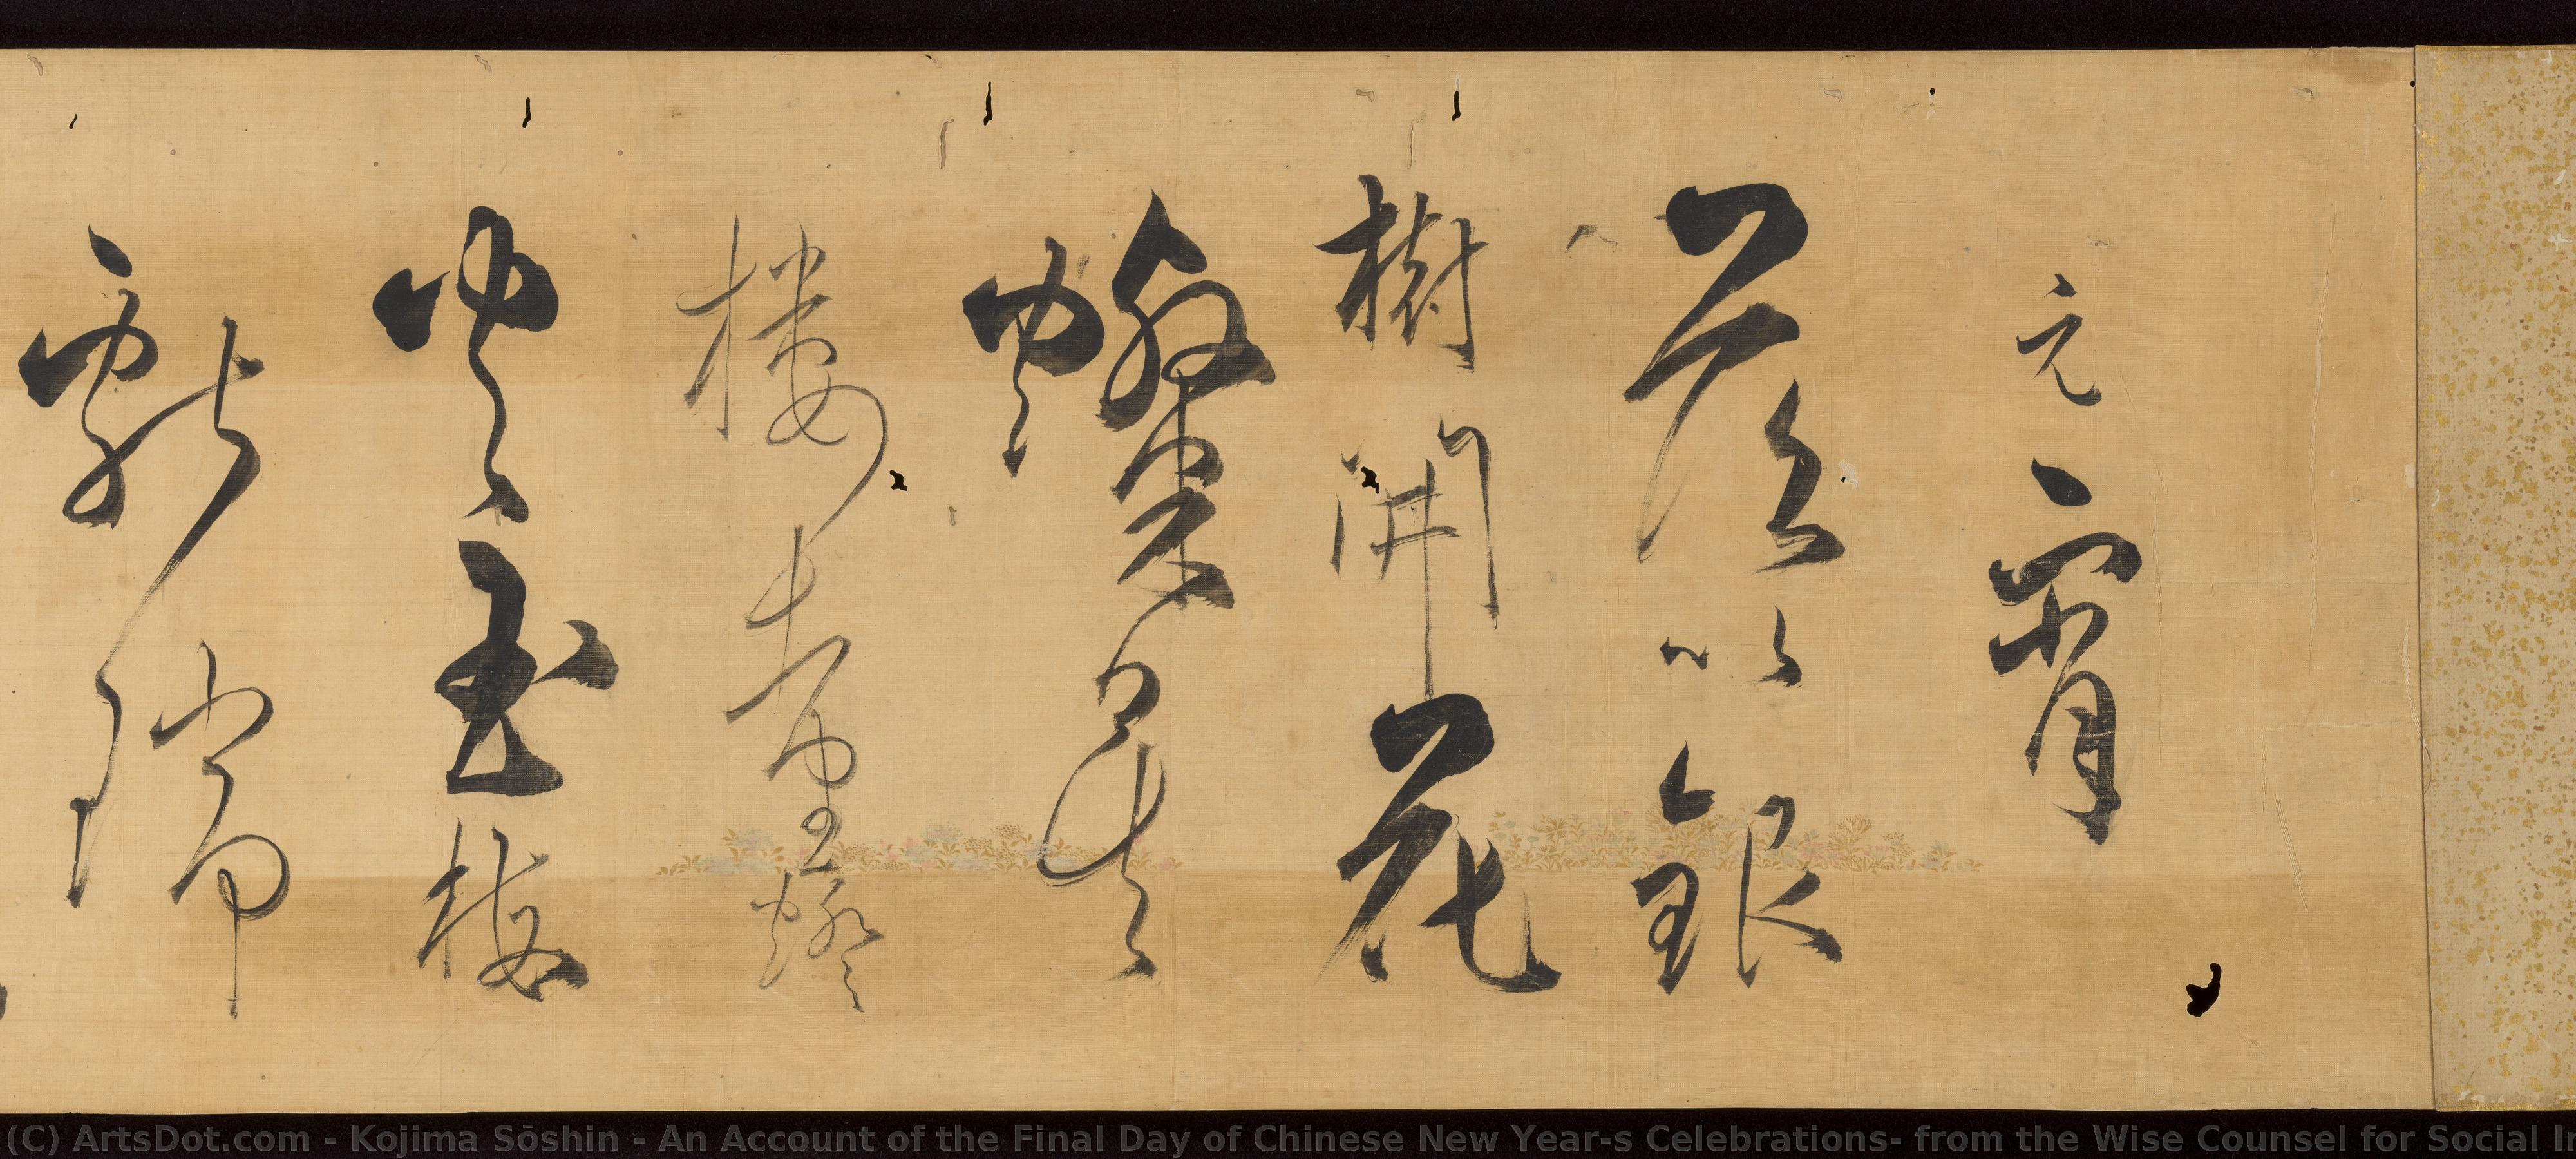 元宵
以銀
樹開花
燦
樓臺燈
玉梅
獻瑞
(C) ArtsDot.com - Kojima Sōshin - An Account of the Final Day of Chinese New Year-s Celebrations- from the Wise Counsel for Social In